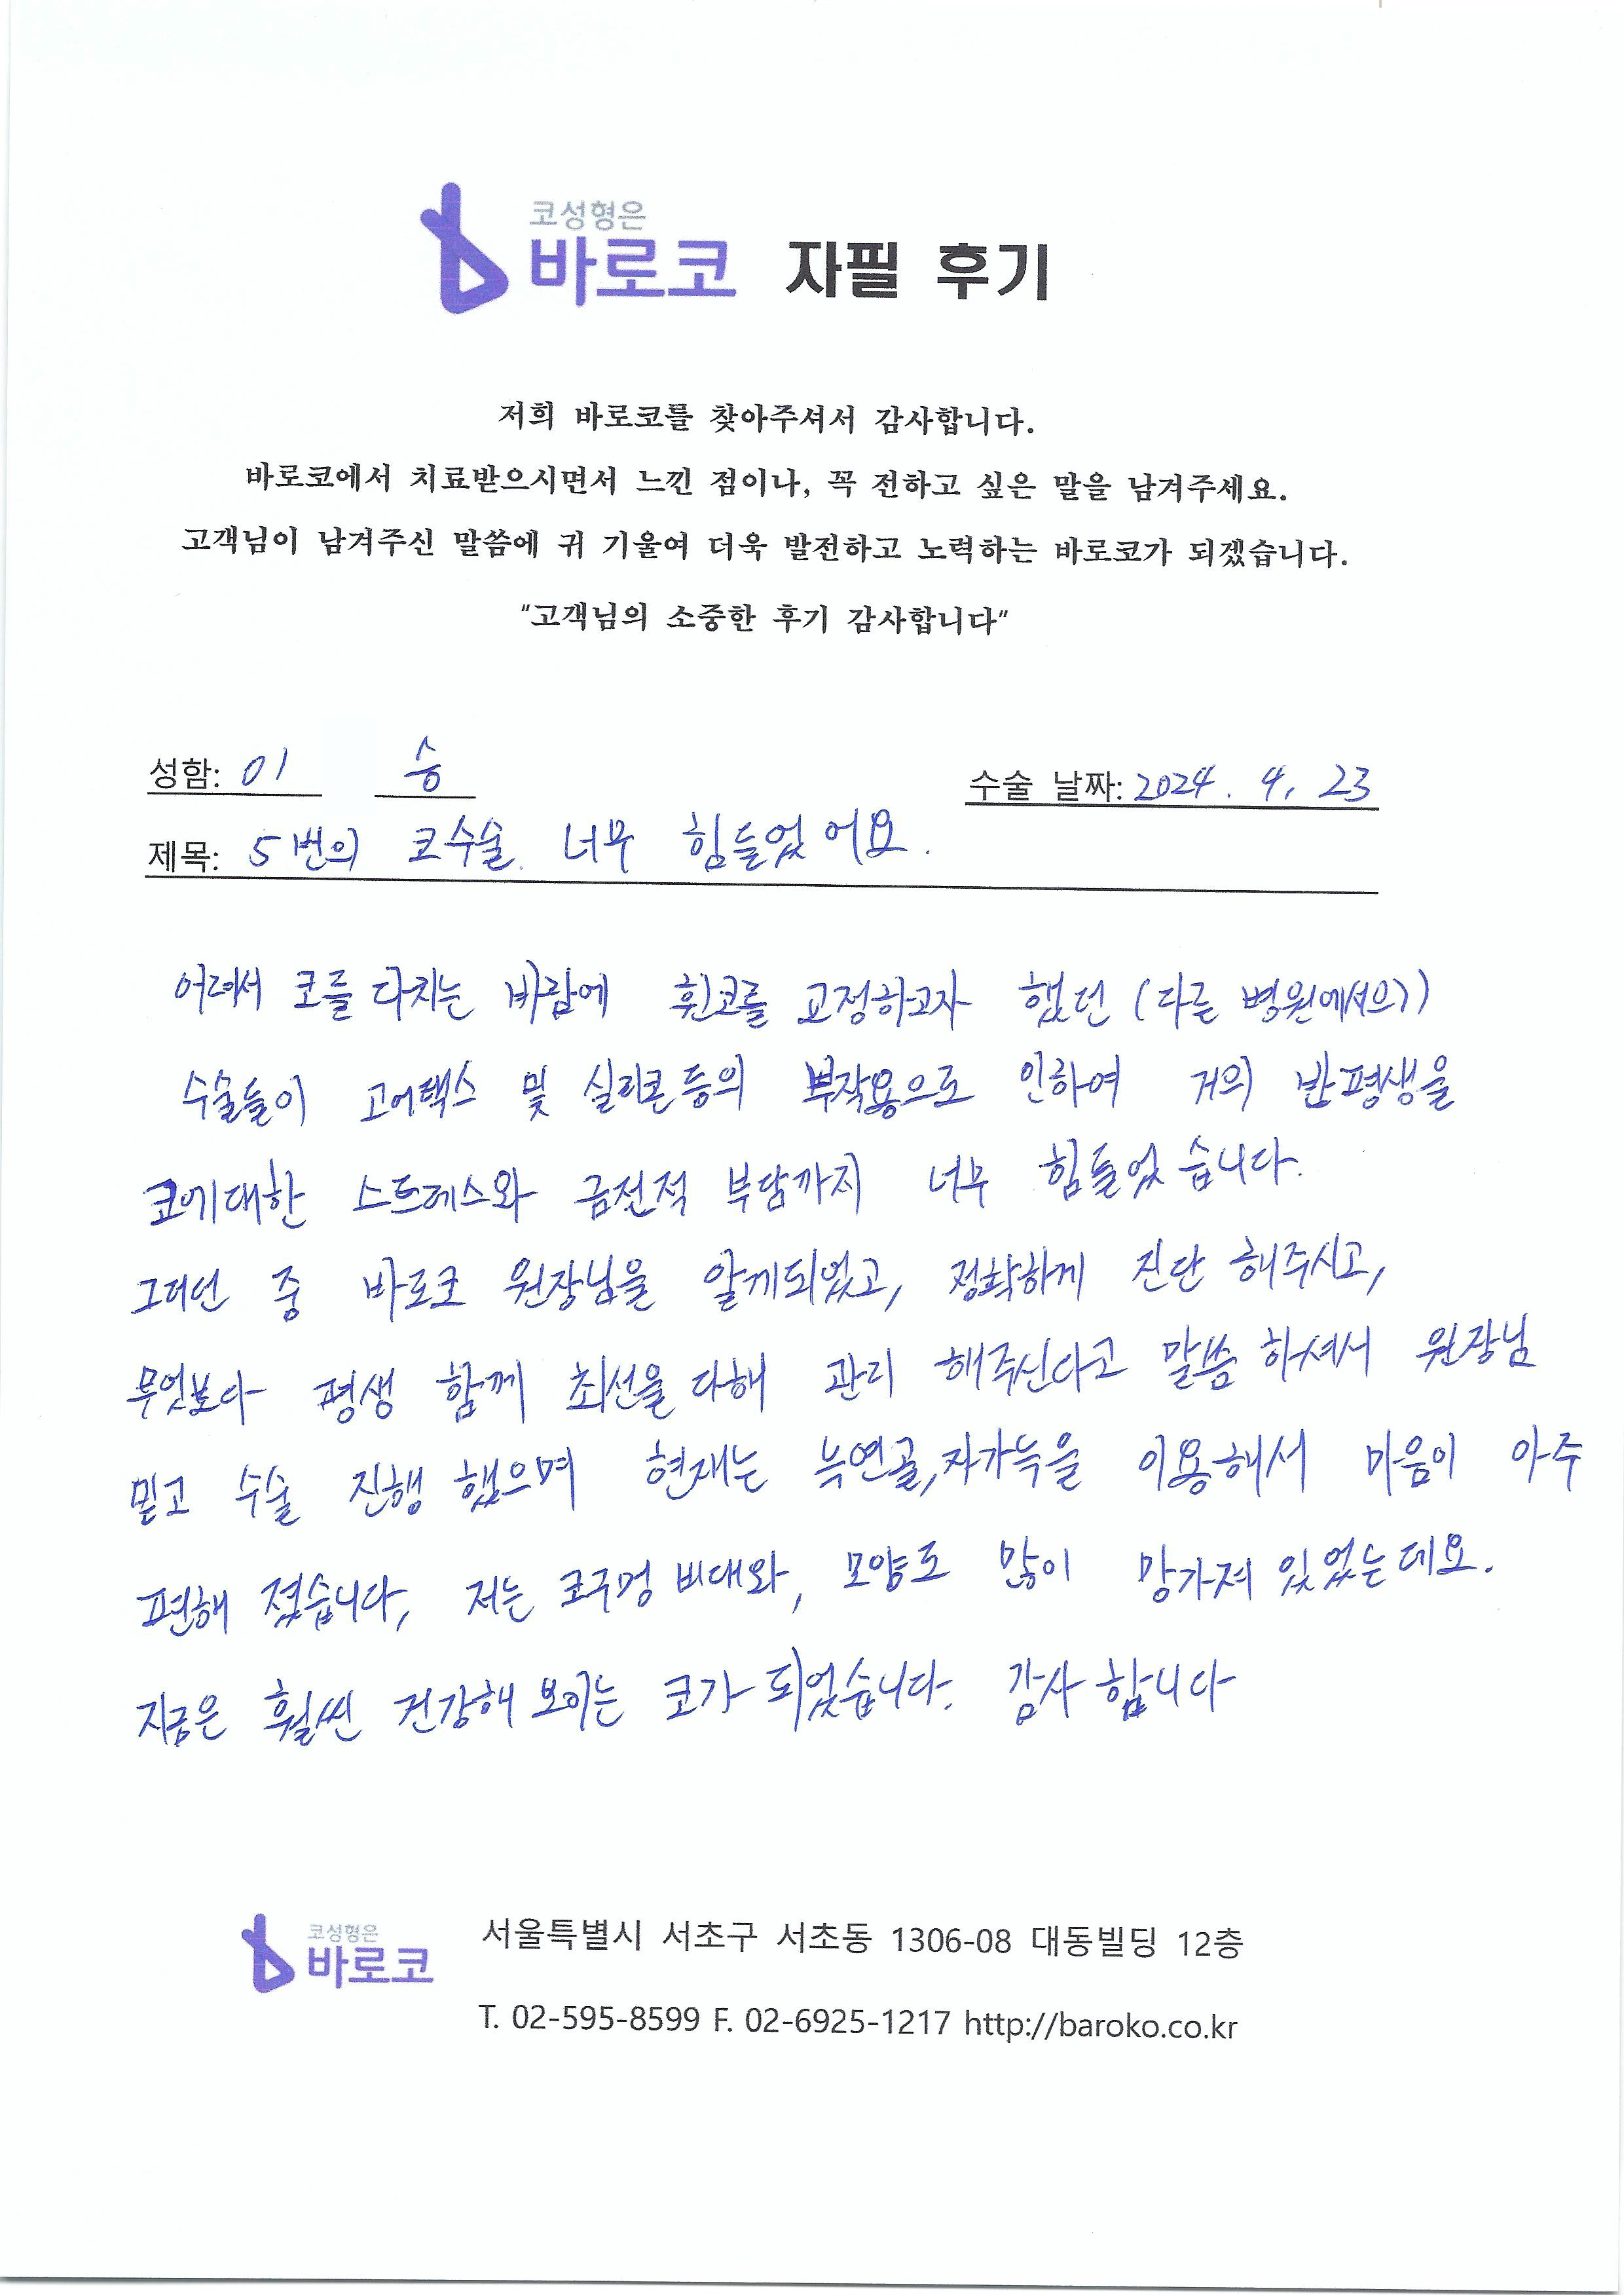 코성형은
바로코 자필 후기
저희 바로코를 찾아주셔서 감사합니다.
바로코에서 치료받으시면서 느낀 점이나, 꼭 전하고 싶은 말을 남겨주세요.
고객님이 남겨주신 말씀에 귀 기울여 더욱 발전하고 노력하는 바로코가 되겠습니다.
"고객님의 소중한 후기 감사합니다"
성함: 이 승 수술 날짜: 2024. 4. 23
제목: 5번의 코수술. 너무 힘들었어요.
어려서 코를 다치는 바람에 휜코를 교정하고자 했던 (다른 병원에서의)
수술들이 고어텍스 및 실리콘등의 부작용으로 인하여 거의 반평생을
코에대한 스트레스와 금전적 부담까지 너무 힘들었습니다.
그러던 중 바로코 원장님을 알게되었고, 정확하게 진단 해주시고,
무엇보다 평생 함께 최선을 다해 관리 해주신다고 말씀 하셔서 원장님
믿고 수술 진행 했으며 현재는 늑연골,자가늑을 이용해서 마음이 아주
편해 졌습니다, 저는 코구멍 비대와, 모양도 많이 망가져 있었는데요.
지금은 훨씬 건강해 보이는 코가 되었습니다. 감사 합니다
코성형은
바로코
서울특별시 서초구 서초동 1306-08 대동빌딩 12층
T. 02-595-8599 F. 02-6925-1217 http://baroko.co.kr